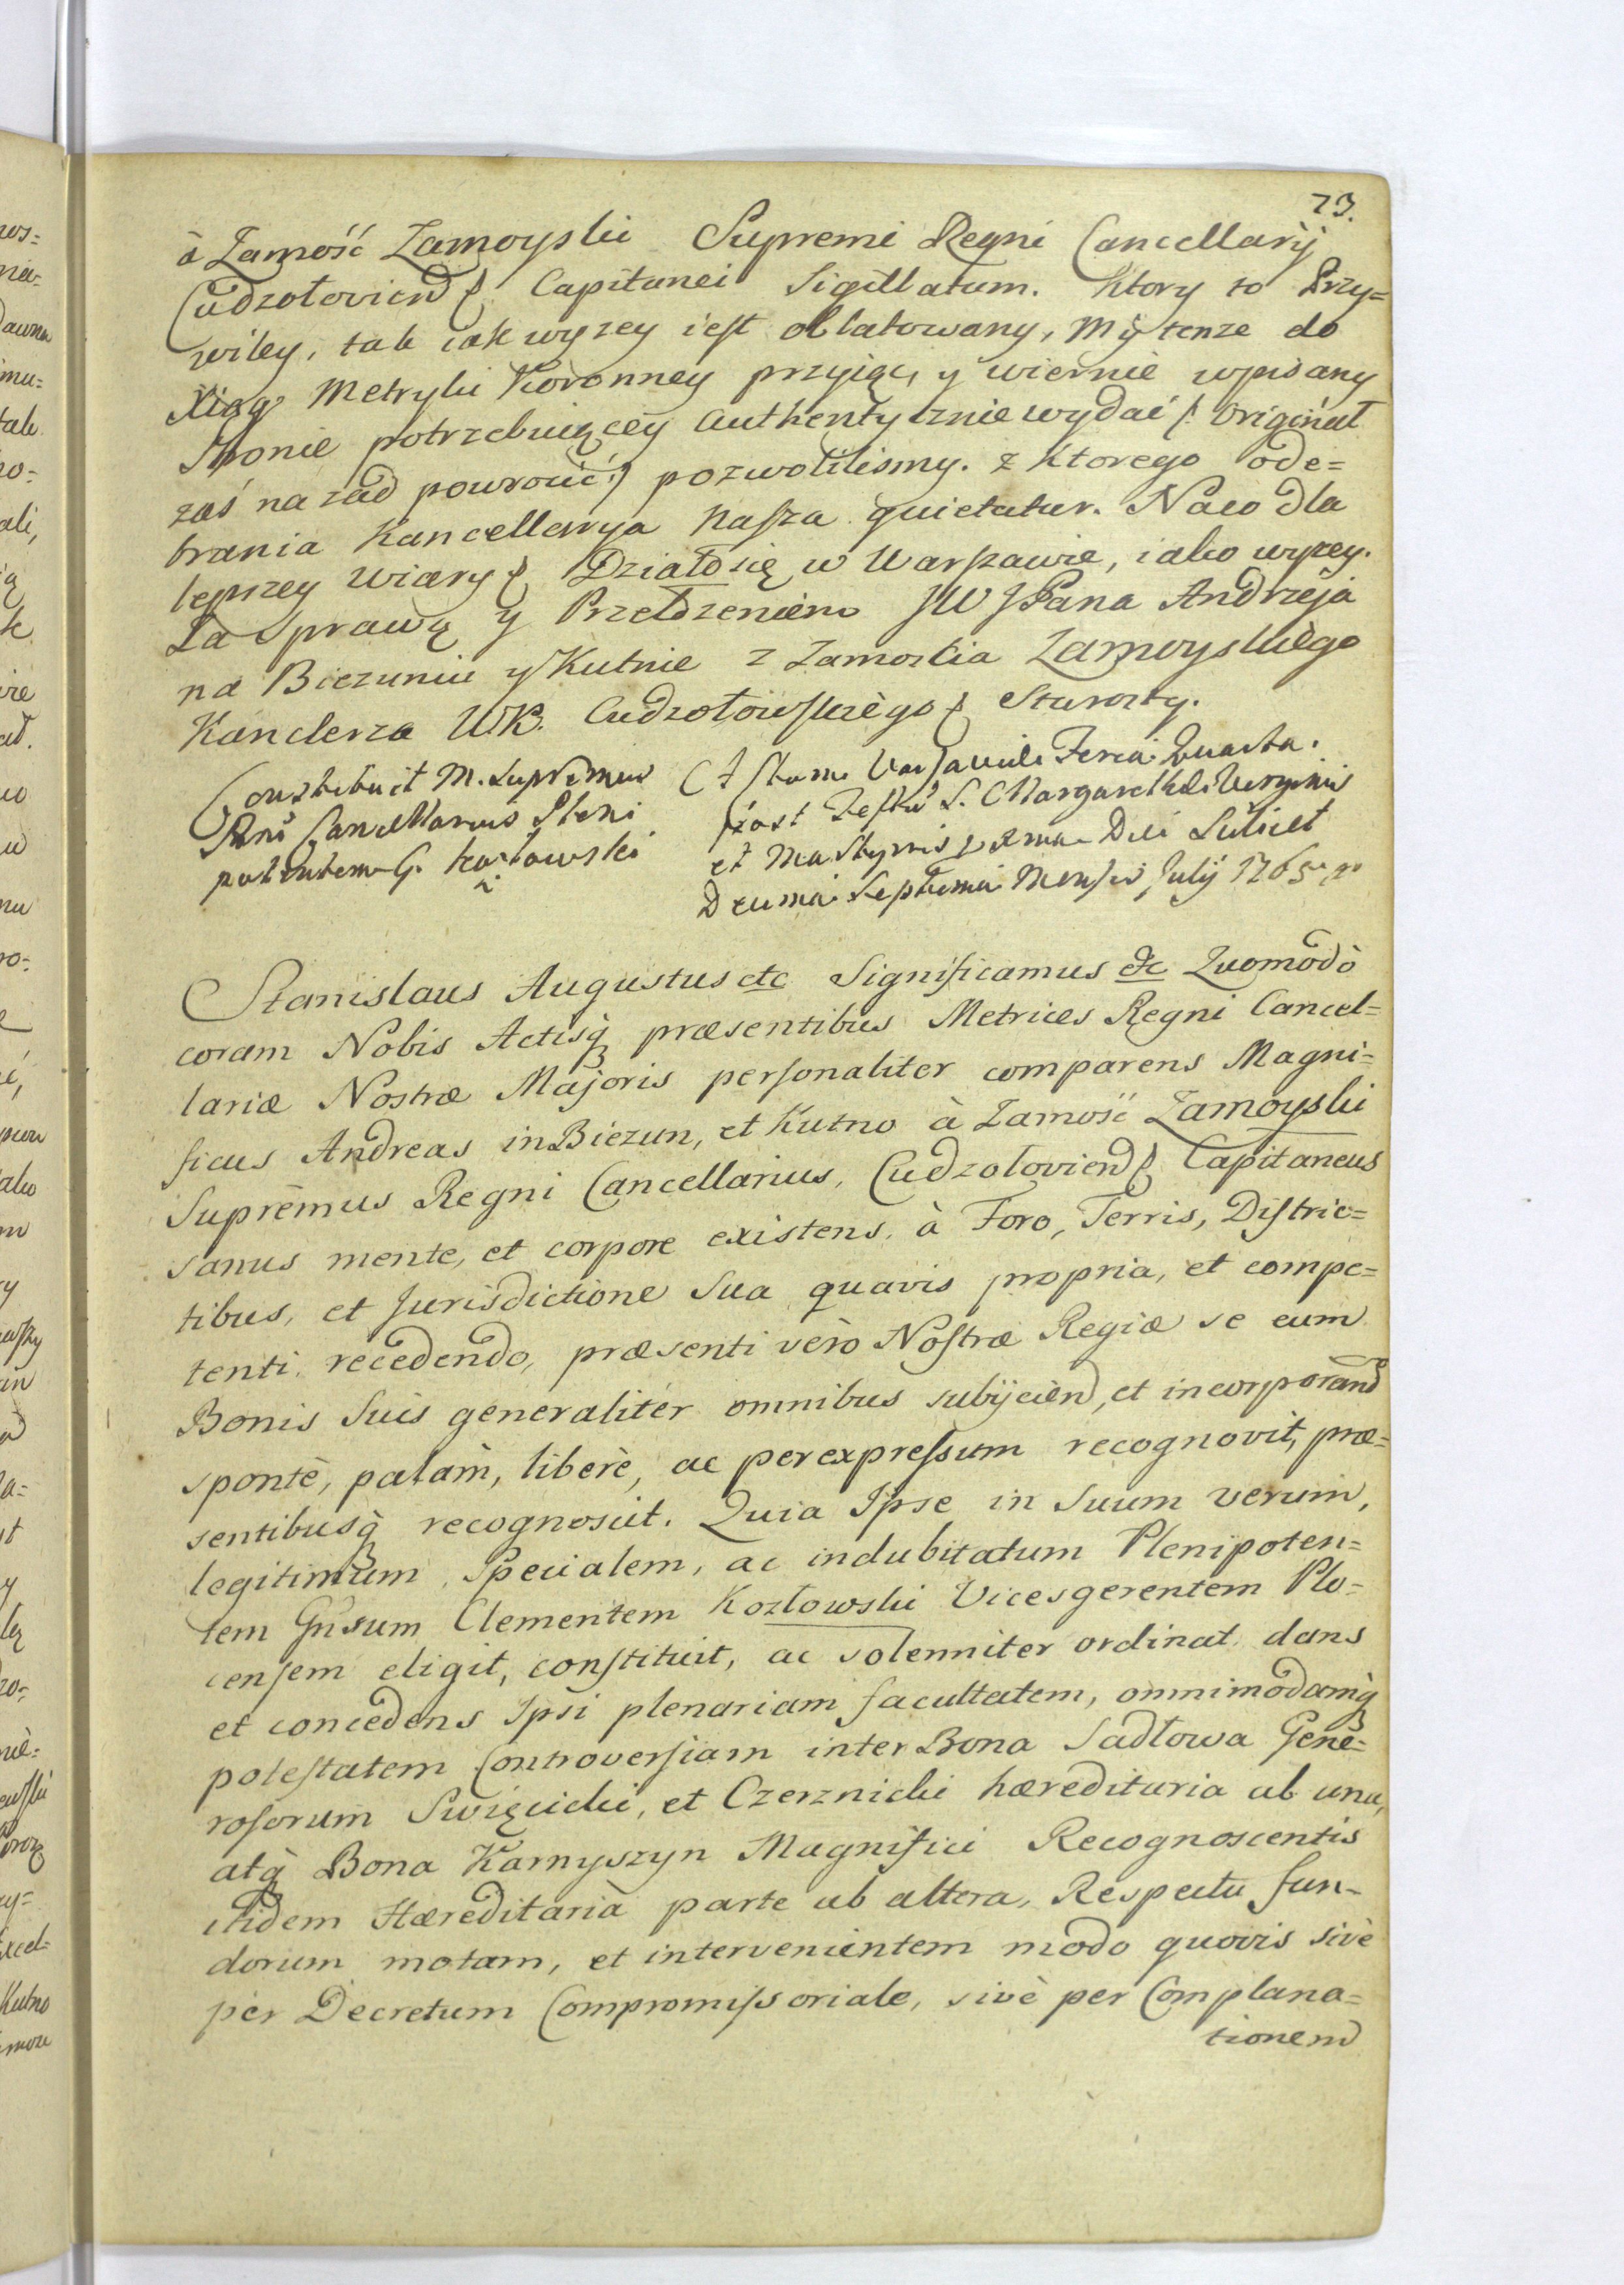 73.
à Zamość Zamoyski Supremi Regni Cancellarij
Cudzołoviens. Capitanei Sigillatum. Ktory to Przy=
wiley, tak iak wyzey iest oblatowany, My tenze do
Xiąg Metryki Koronney przyiąć, y wiernie wpisany
Stronie potrzebuiącey Authentycznie wydać /: Originał
zaś nazad powrocić :/ pozwolilismy. z Ktorego ode=
brania Kancellarya Nasza quietatur. Na co dla
lepszey wiary Działo się w Warszawie, iako wyzey.
Za Sprawą y Przełozeniem JW JPana Andrzeja
na Biezuniu y Kutnie z Zamoscia Zamoyskiego
Kanclerza WK. Cudzołowskiego Starosty.
Constituit M. Supremus
Rni Cancellarius Pleni
potentem G. Kozłowski
Actum Varsaviæ Feria Quarta
post Festū S. Margarethæ Virginis
et Martyris prima Die Scilicet
Decima Septima Mensis July 1765
Stanislaus Augustus etc Significamus etc Quomodò
coram Nobis Actisq̨ præsentibus Metrices Regni Cancel=
lariæ Nostræ Majoris personaliter comparens Magni=
ficus Andreas in Biezun, et Kutno à Zamość Zamoyski
Supremus Regni Cancellarius, Cudzołoviens. Capitaneus
sanus mente, et corpore existens, à Foro, Terris, Distric=
tibus, et Jurisdictione Sua quavis propria, et compe=
tenti recedendo, præsenti verò Nostræ Regiæ se cum
Bonis Suis generaliter omnibus subijcien, et incorporand
spontè, palàm, liberè, ac per expressum recognovit, præ=
sentibusq̨ recognoscit. Quia Ipse in Suum verum,
legitimum, Specialem, ac indubitatum Plenipoten=
tem Gnsum Clementem Kozłowski Vicesgerentem Plo=
censem eligit, constituit, ac solenniter ordinat, dans
et concedens Ipsi plenariam facultatem, omnimodamq̨
potestatem Controversiam inter Bona Sadłowa Gene=
rosorum Swięcicki, et Czerznicki hæreditaria ab una,
atq̨ Bona Kamyszyn Magnifici Recognoscentis
itidem Hæreditaria parte ab altera, Respectu fun=
dorum motam, et intervenientem modo quovis sivè
per Decretum Compromissoriale, sivè per Complana=
tionem